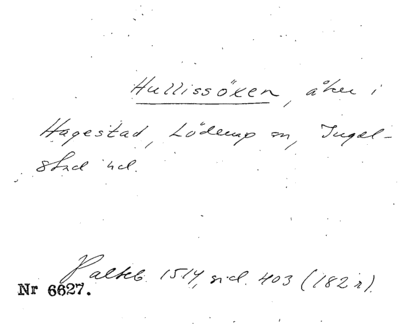 Hullissöken, åker i
Hagestad, Löderup sn, Ingel-
stad hd.
Palteb. 1514, sid. 403 (182 r).
Nr 6627.